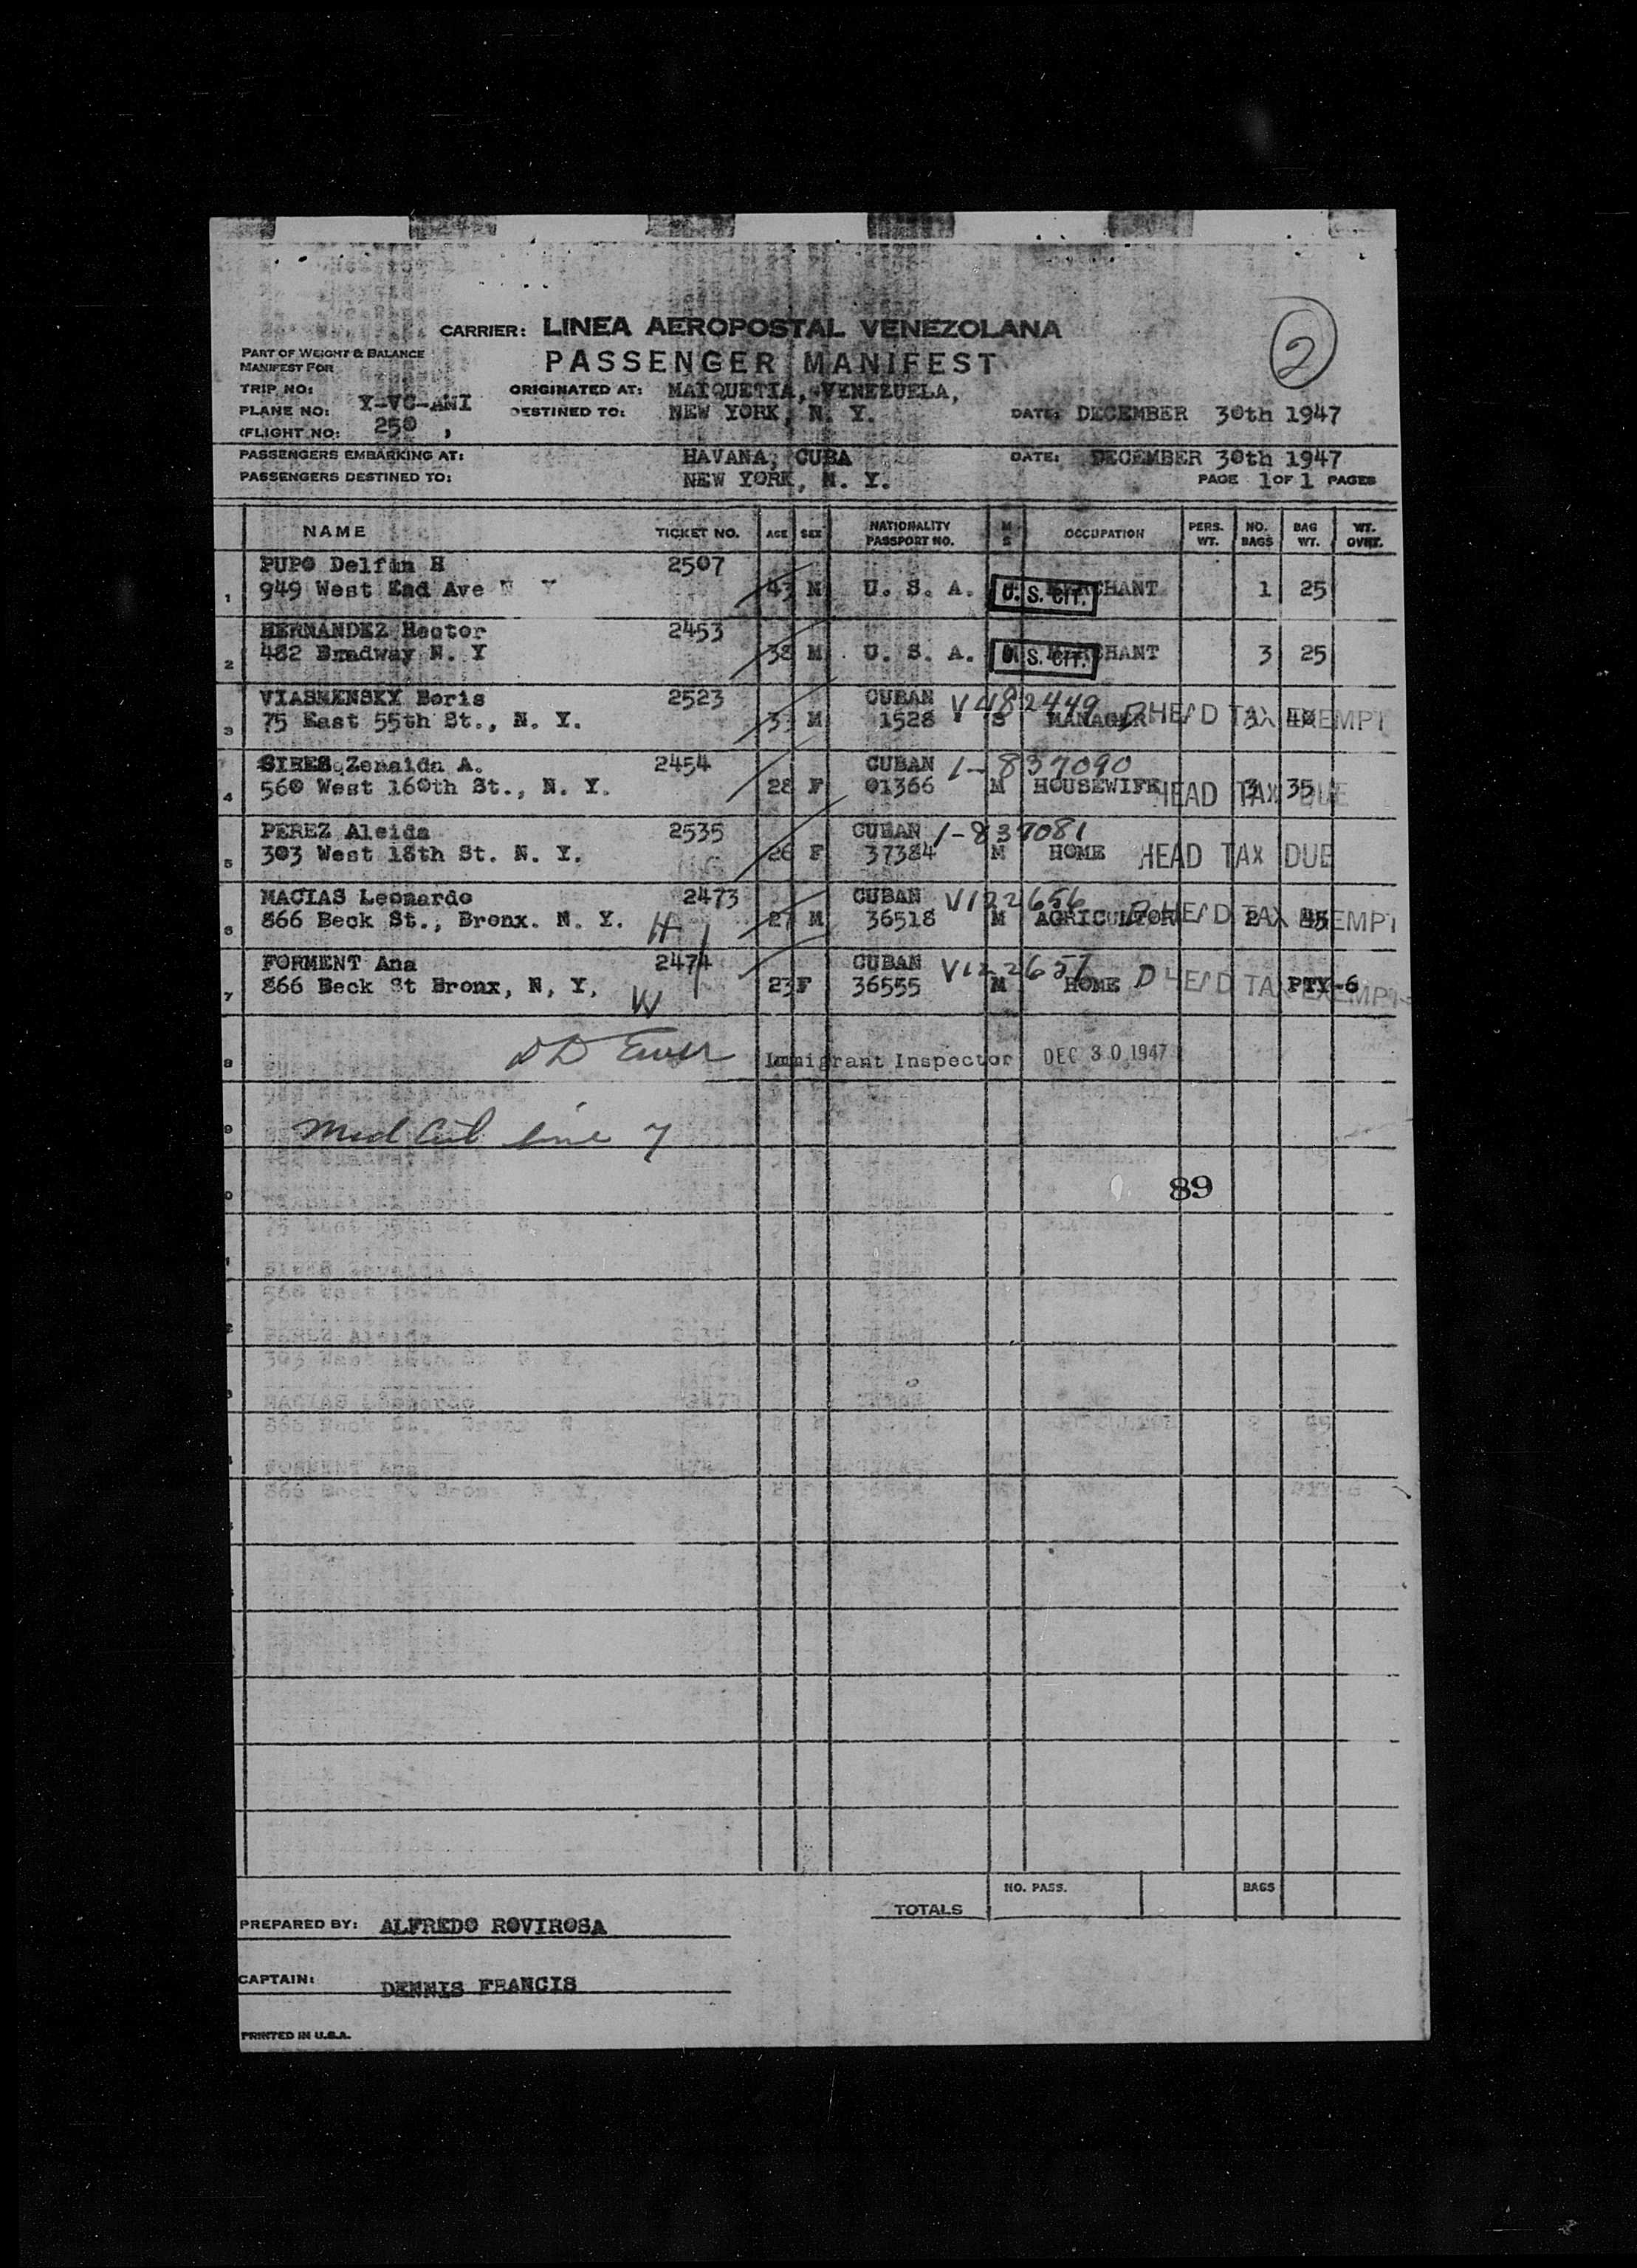 2
CARRIER: LINEA AEROPOSTAL VENEZOLANA
PART OF WEIGHT & BALANCE
MANIFEST FOR
PASSENGER MANIFEST
TRIP NO:
ORIGINATED AT: MAIQUETIA, VENEZUELA,
PLANE NO: Y-VC-AMI
DESTINED TO: NEW YORK, N. Y.
DATE: DECEMBER 30th 1947
(FLIGHT NO: 250 ,
PASSENGERS EMBARKING AT: HAVANA, CUBA DATE: DECEMBER 30th 1947
PASSENGERS DESTINED TO: NEW YORK, N. Y. PAGE 1 OF 1 PAGES
NAME TICKET NO. AGE SEX NATIONALITY PASSPORT NO. M S OCCUPATION PERS. WT. NO. BAGS BAG WT. WT. OVRT.
PUPO Delfin H 2507
1 949 West End Ave N Y 43 M U. S. A. U. S. CIT. MERCHANT 1 25
HERNANDEZ Hector 2453
2 482 Bradway N. Y 38 M U. S. A. U. S. CIT. MERCHANT 3 25
VIASMENSKY Boris 2523 CUBAN V482449
3 75 East 55th St., N. Y. M 1528 S MANAGER D HEAD TAX EXEMPT 3 40
SIRES Zenaida A. 2454 CUBAN 1-837090
4 560 West 160th St., N. Y. 28 F 01366 M HOUSEWIFE HEAD TAX DUE 3 35
PEREZ Aleida 2535 CUBAN 1-837081
5 303 West 18th St. N. Y. 26 F 37384 M HOME HEAD TAX DUE
MACIAS Leonardo 2473 CUBAN V122656
6 866 Beck St., Bronx. N. Y. H 27 M 36518 M AGRICULTOR D HEAD TAX EXEMPT 2 45
FORMENT Ana 2474 CUBAN V122657
7 866 Beck St Bronx, N, Y, W 23 F 36555 M HOME D HEAD TAX EXEMPT PTY-6
8 Immigrant Inspector DEC 30 1947
9 Med Cert line 7
89
NO. PASS. BAGS
TOTALS
PREPARED BY: ALFREDO ROVIROSA
CAPTAIN: DENNIS FRANCIS
PRINTED IN U.S.A.